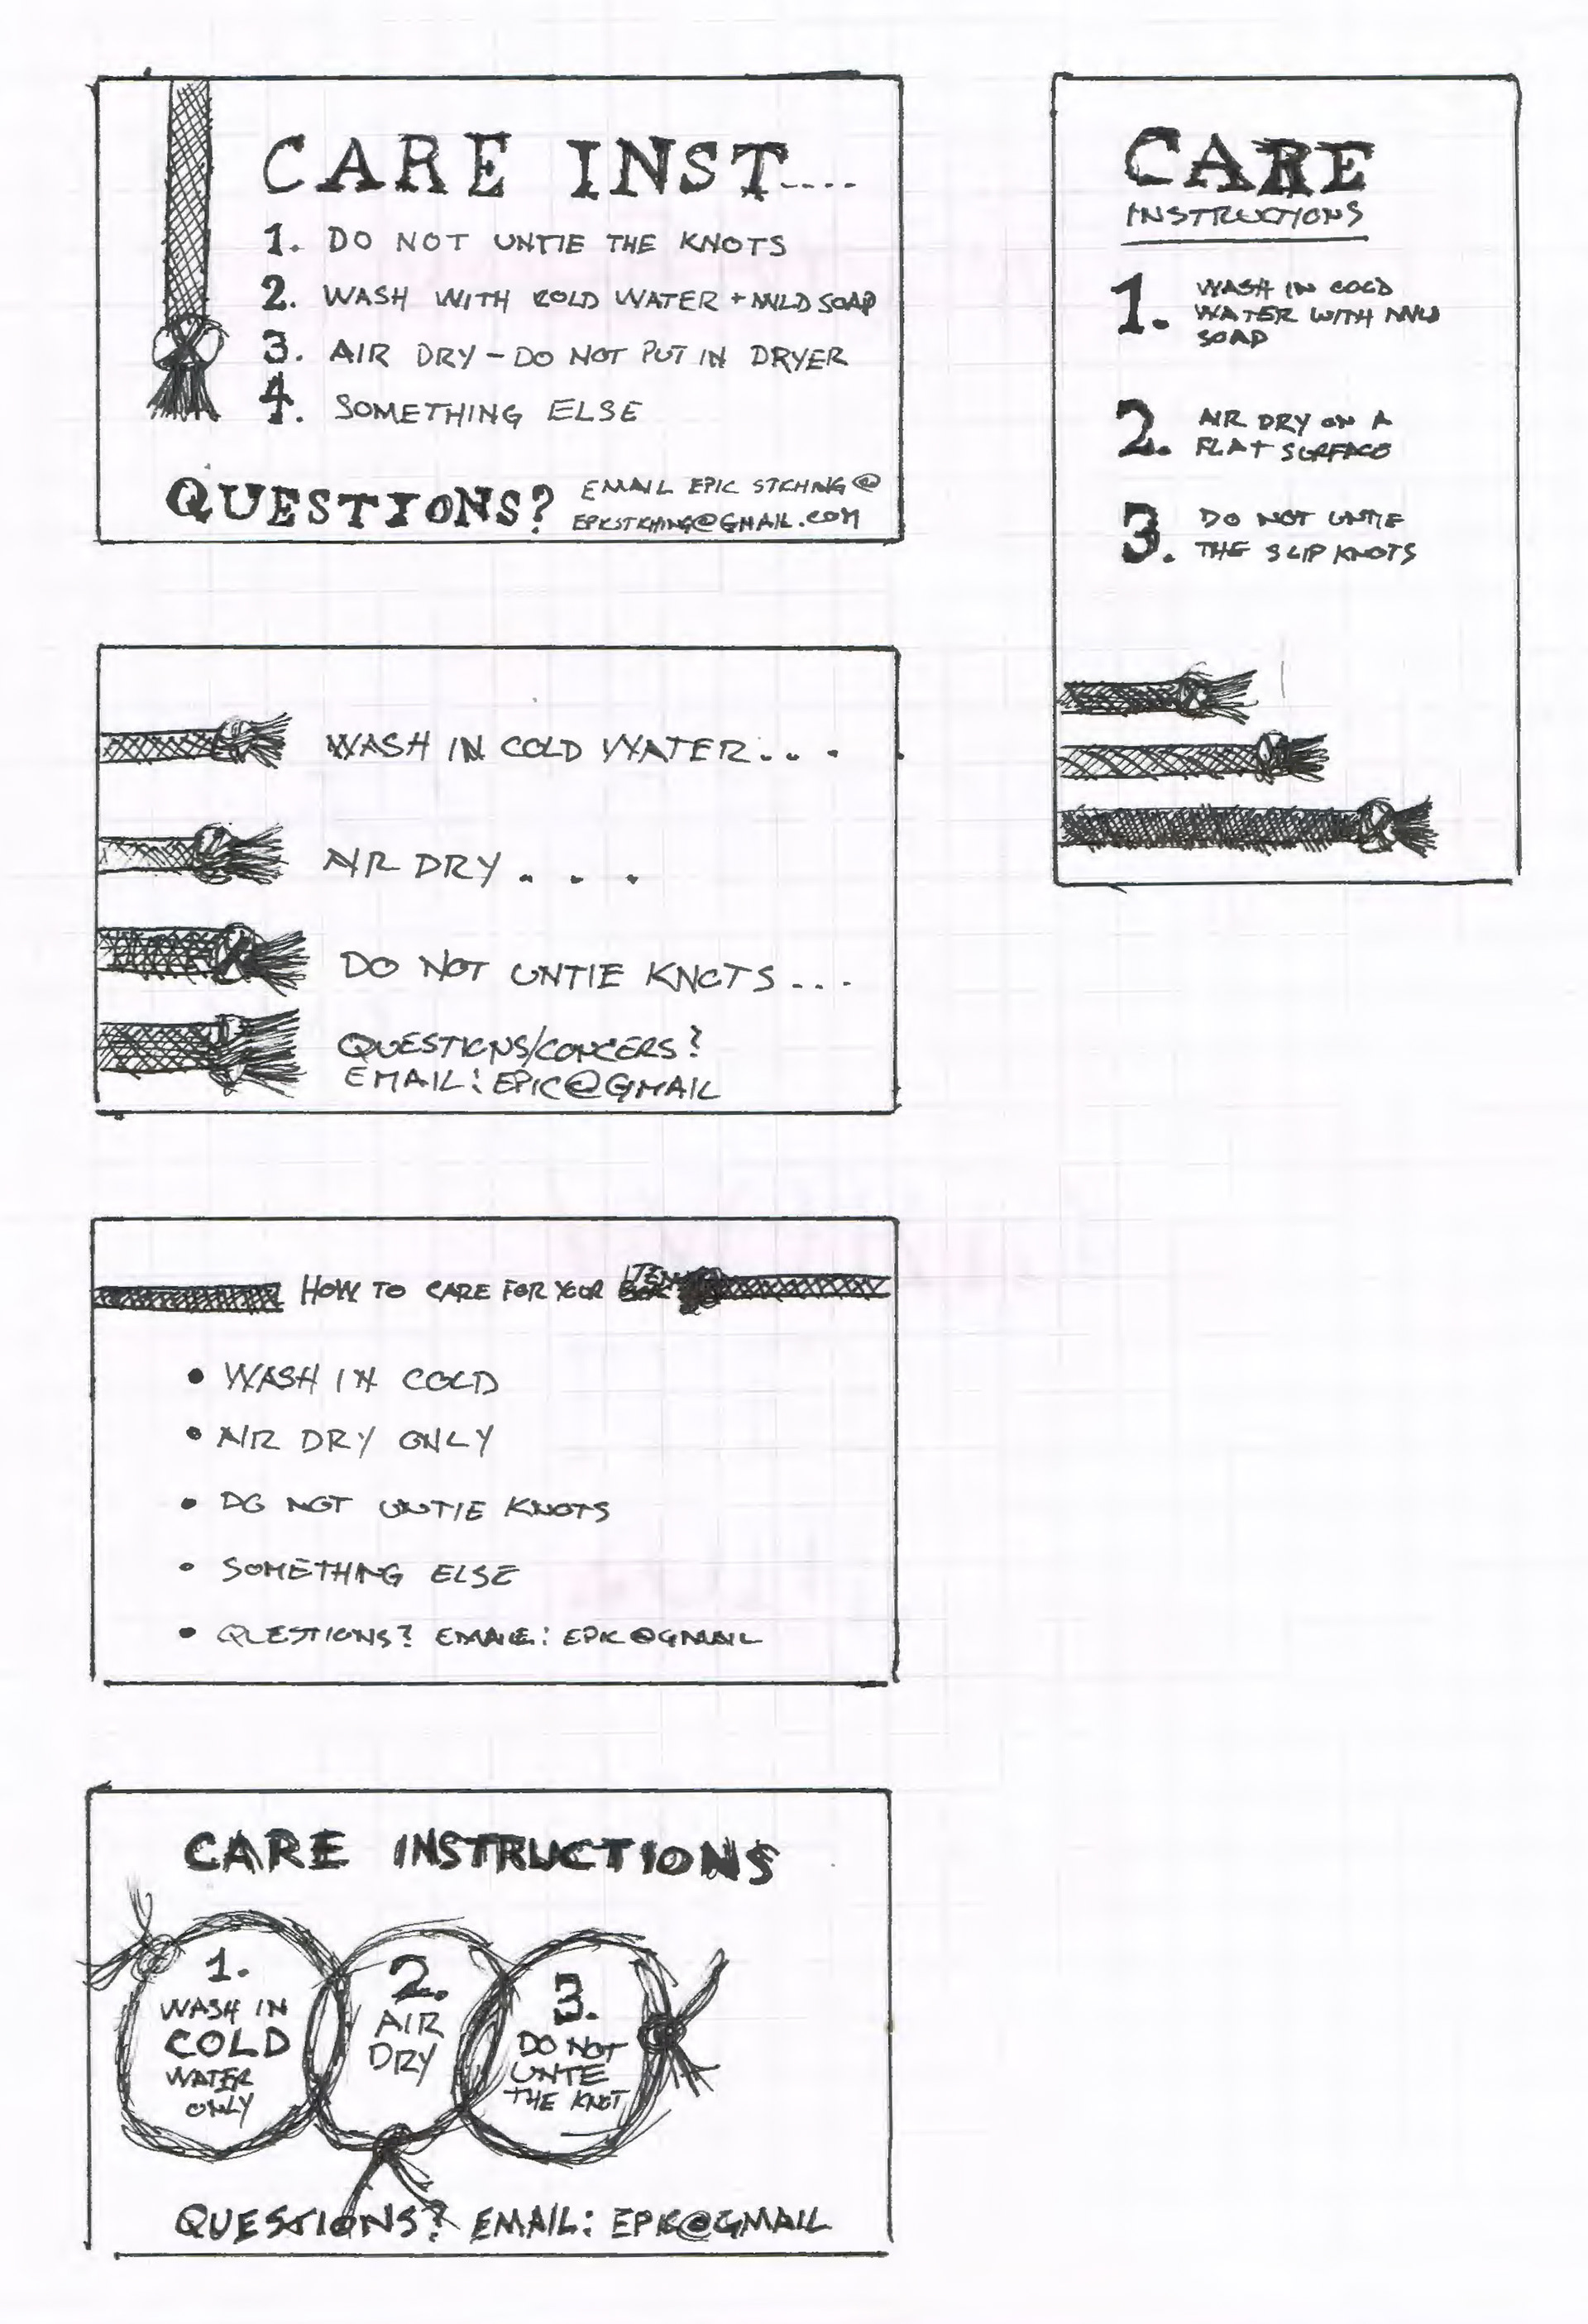 CARE INST....
1. DO NOT UNTIE THE KNOTS
2. WASH WITH COLD WATER + MILD SOAP
3. AIR DRY - DO NOT PUT IN DRYER
4. SOMETHING ELSE
QUESTIONS?
EMAIL EPIC STCHING @
EPICSTCHING@GMAIL.COM
CARE
INSTRUCTIONS
1. WASH IN COLD
WATER WITH MILD
SOAP
2. AIR DRY ON A
FLAT SURFACE
3. DO NOT UNTIE
THE SLIP KNOTS
WASH IN COLD WATER....
AIR DRY...
DO NOT UNTIE KNOTS...
QUESTIONS/CONCERS?
EMAIL: EPIC@GMAIL
HOW TO CARE FOR YOUR ITEM
• WASH IN COLD
• AIR DRY ONLY
• DO NOT UNTIE KNOTS
• SOMETHING ELSE
• QUESTIONS? EMAIL: EPIC@GMAIL
CARE INSTRUCTIONS
1.
WASH IN
COLD
WATER
ONLY
2.
AIR
DRY
3.
DO NOT
UNTE
THE KNOT
QUESTIONS? EMAIL: EPIC@GMAIL